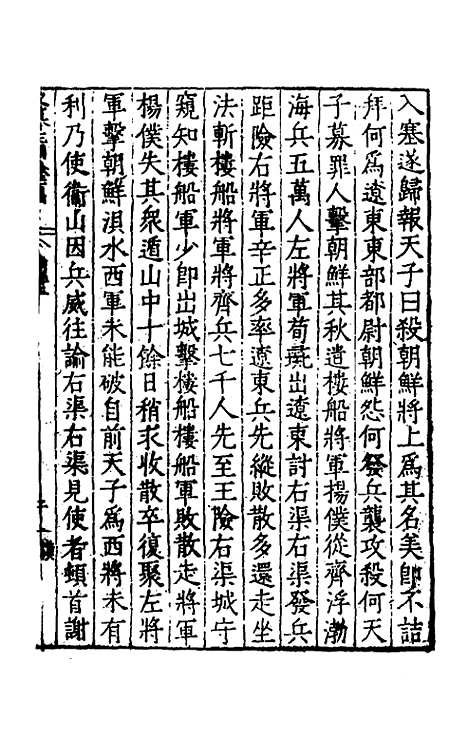 入塞遂歸報天子曰殺朝鮮將上爲其名美卽不詰
拜何爲遼東東部都尉朝鮮怨何發兵襲攻殺何天
子募罪人擊朝鮮其秋遣樓船將軍揚僕從齊浮渤
海兵五萬人左將軍荀彘出遼東討右渠右渠發兵
距險右將軍辛正多率遼東兵先縱敗散多還走坐
法斬樓船將軍將齊兵七千人先至王險右渠城守
窺知樓船軍少卽出城擊樓船樓船軍敗散走將軍
楊僕失其衆遁山中十餘日稍求收散卒復聚左將
軍擊朝鮮浿水西軍未能破自前天子爲西將未有
利乃使衞山因兵威往諭右渠右渠見使者頓首謝